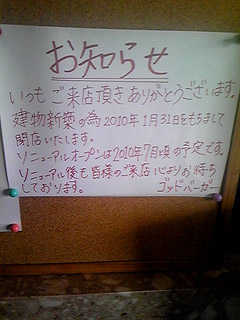 お知らせ
いつもご来店頂きありがとうございます。
建物新築の為2010年1月31日をもちまして
閉店いたします。
リニューアルオープンは2010年7月頃の予定です。
リニューアル後も皆様のご来店心よりお待ち
しております。 ゴッドバーガー